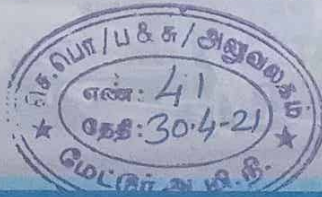 செ.பொ/ப & சு/அலுவலகம்
எண்: 41
தேதி: 30-4-21
மேட்டூர் அ.மி.நி.